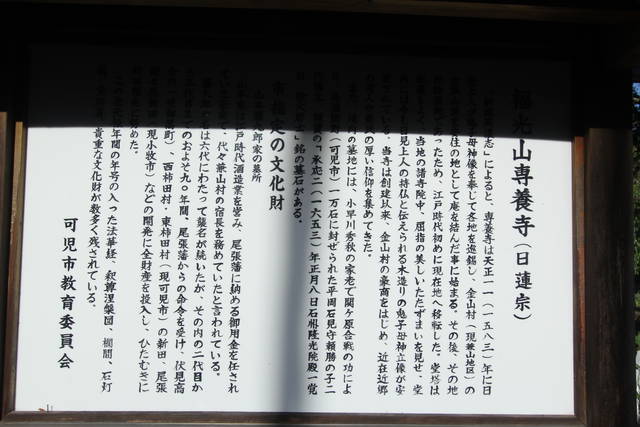 福光山専養寺（日蓮宗）
志」によると、専養寺は天正一一（一五八三）年に日
母神像を奉じて各地を巡錫し、金山村（現兼山地区）の
住の地として庵を結んだ事に始まる。その後、その地
あったため、江戸時代初めに現在地へ移転した。堂塔は
当地の諸寺院中、屈指の美しいたたずまいを見せ、堂
日見上人の持仏と伝えられる木造りの鬼子母神立像が安
当寺は創建以来、金山村の豪商をはじめ、近在近郷
の厚い信仰を集めてきた。
の墓地には、小早川秀秋の家老で関ヶ原合戦の功によ
（可児市）一万石に封ぜられた平岡石見守頼勝の子二
の「承応二（一六五三）年正月八日石樹隆光院殿一覚
」銘の墓石がある。
市指定の文化財
郎家の墓所
江戸時代酒造業を営み、尾張藩に納める御用金を任され
代々兼山村の宿長を務めていたと言われている。
は六代にわたって襲名が続いたが、その内の二代目か
のおよそ九〇年間、尾張藩からの命令を受け、伏見高
町）、西柿田村・東柿田村（現可児市）の新田、尾張
現小牧市）などの開発に全財産を投入し、ひたむきに
めた。
年間の年号の入った法華経、釈尊涅槃図、欄間、石灯
貴重な文化財が数多く残されている。
可児市教育委員会